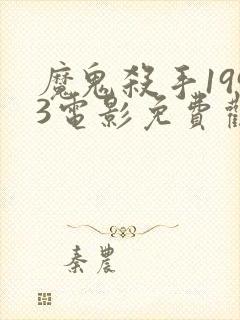 魔鬼殺手199
3電影免費觀
秦農